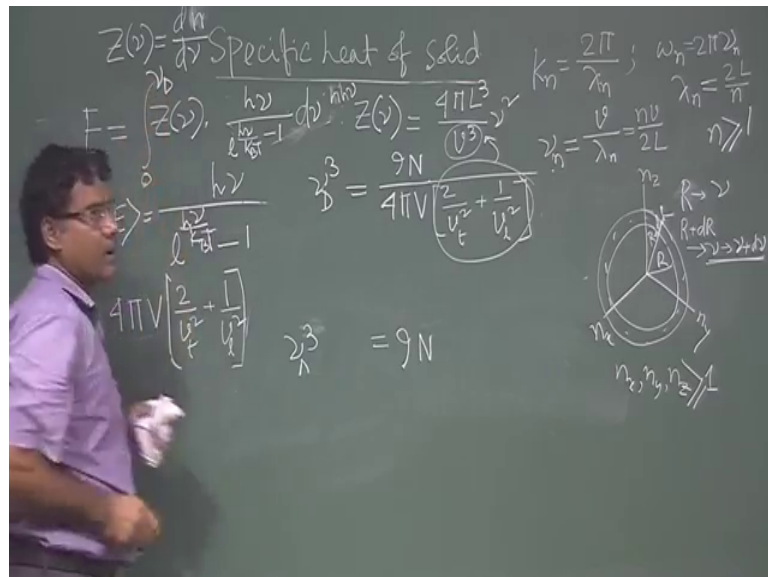 Z(ν) = dn/dν Specific heat of solid
E = ∫₀^{ν_D} Z(ν) · hν/(e^{hν/k_BT} − 1) dν
Z(ν) = 4πL³/v³ ν²
E> = hν/(e^{hν/k_BT} − 1)
ν_D³ = 9N/(4πV[2/v_t² + 1/v_l²])
4πV[2/v_t² + 1/v_l²] ν³ = 9N
k_n = 2π/λ_n ; ω_n = 2πν_n
λ_n = 2L/n
ν_n = v/λ_n = nv/2L n ⩾ 1
n_z
R → ν
R+dR
→ ν → ν+dν
R
n_x
n_y
n_x, n_y, n_z ⩾ 1